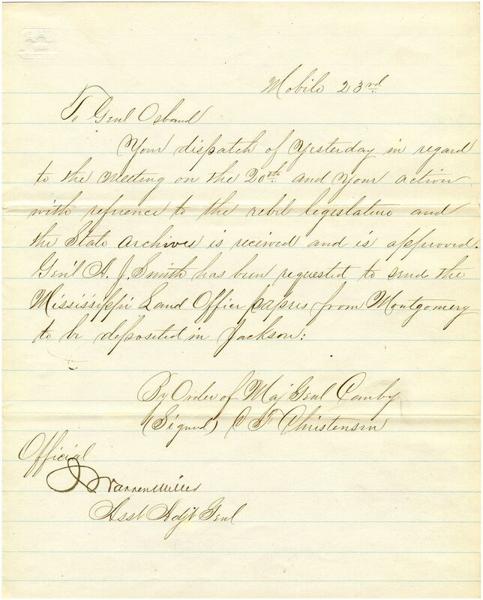 Mobile 23rd
To Genl Osband
Your dispatch of Yesterday in regard
to the meeting on the 20th and Your action
with refrence to the rebil legislature and
the State archives is recived and is approved.
Gen'l A. J. Smith has been requested to send the
Mississippi Land Office papers from Montgomery
to be deposited in Jackson:
By Order of Maj Genl Canby
(Signed) C T Christensen
Official
J Warren Miller
Asst Adjt Genl